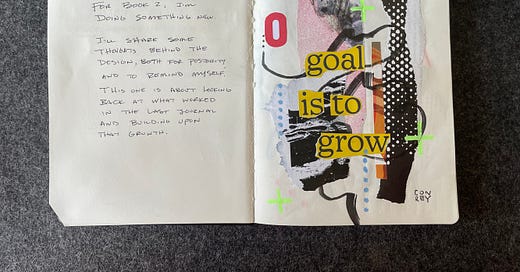 FOR BOOK 2, I'M
DOING SOMETHING NEW.
I'LL SHARE SOME
THOUGHTS BEHIND THE
DESIGN, BOTH FOR POSTERITY
AND TO REMIND MYSELF.
THIS ONE IS ABOUT LOOKING
BACK AT WHAT WORKED
IN THE LAST JOURNAL
AND BUILDING UPON
THAT GROWTH.
0
goal
is to
grow
CON
LEY